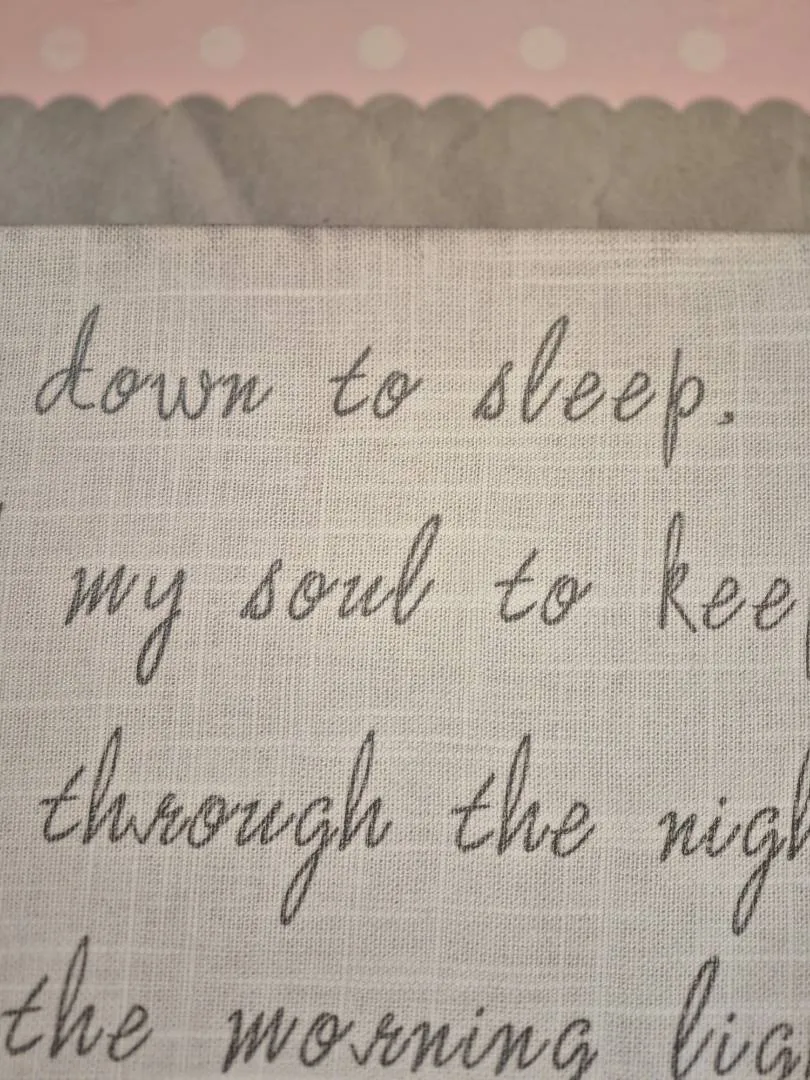 down to sleep,
my soul to keep
through the nigh
the morning lig